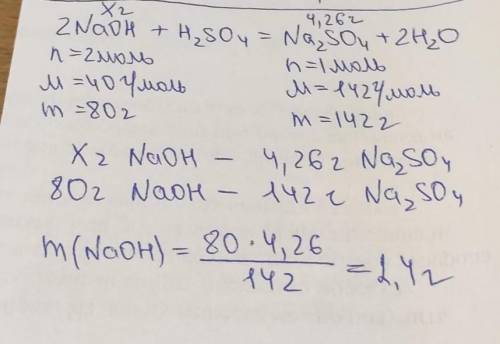 xг 4,26г
2NaOH + H₂SO₄ = Na₂SO₄ + 2H₂O
n = 2моль n = 1моль
M = 40г/моль M = 142г/моль
m = 80г m = 142г
Xг NaOH – 4,26г Na₂SO₄
80г NaOH – 142г Na₂SO₄
m(NaOH) = 80·4,26 / 142 = 2,4г